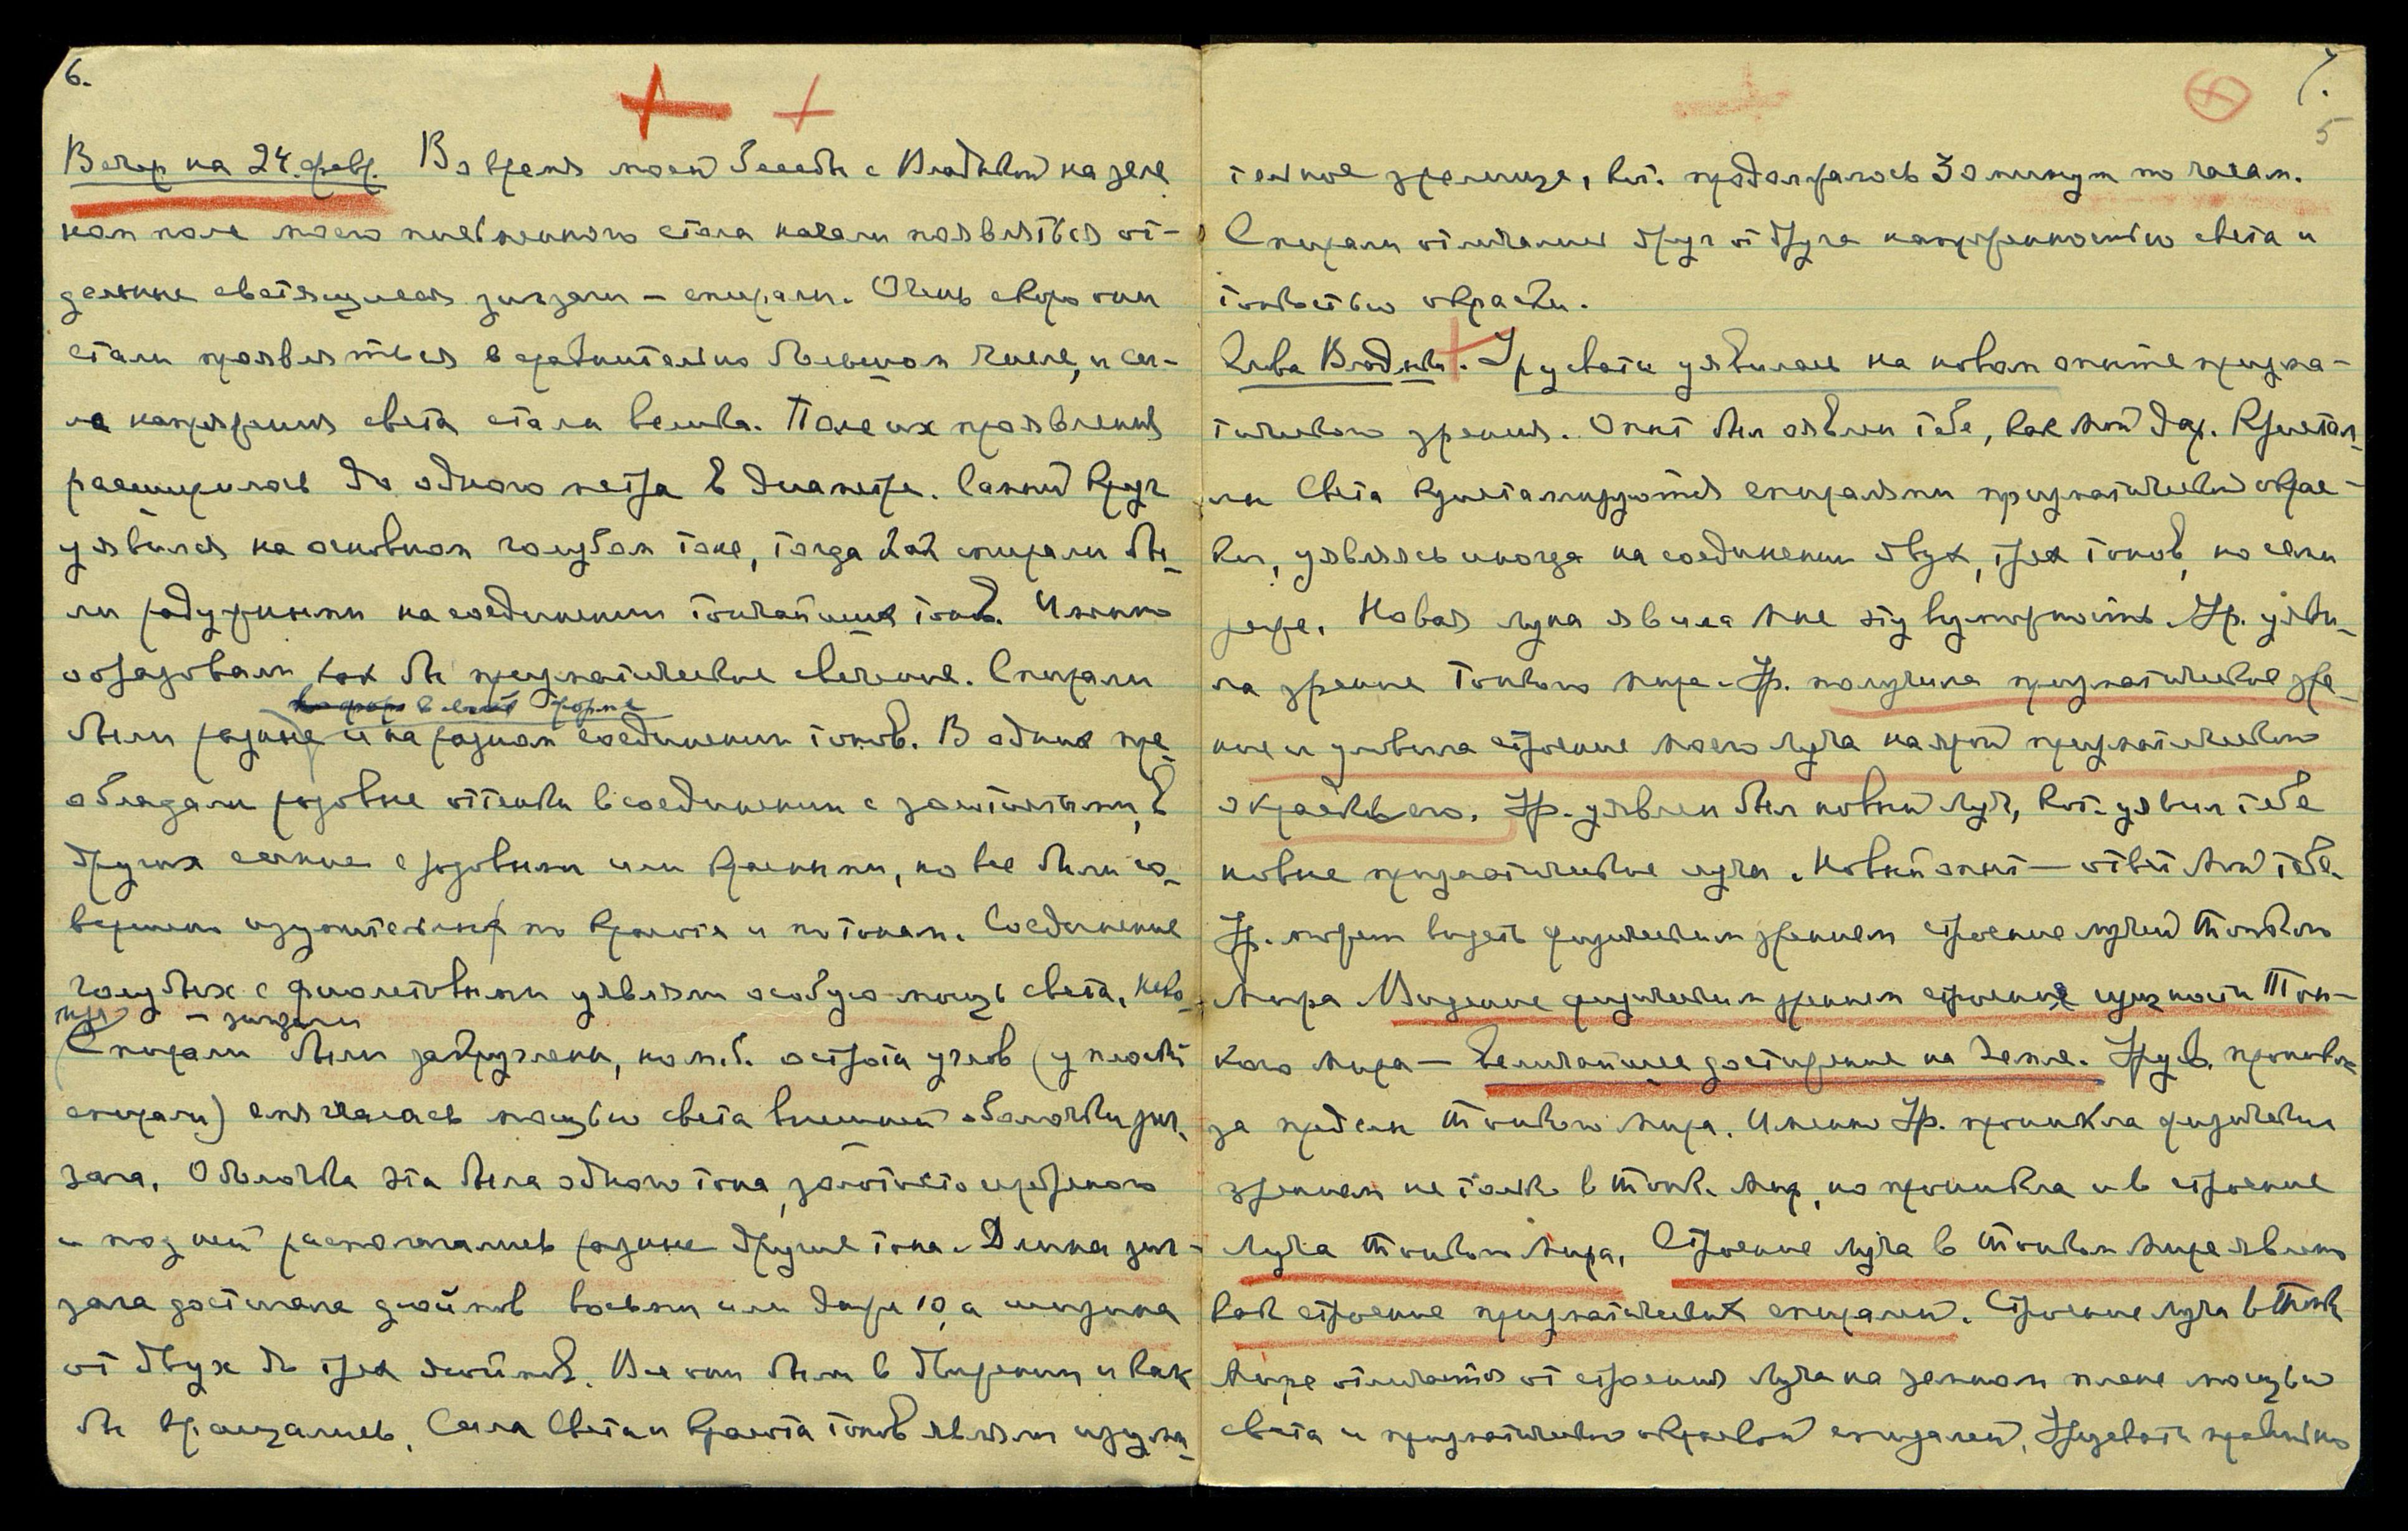 6.
Вечер на 24. февр. Во время моей беседы с Владыкой на зеле
ном поле моего письменного стола начали появляться от-
дельные светящиеся зигзаги – спирали. Очень скоро они
стали проявляться в сравнительно большом числе, и си-
ла напряжения света стала велика. Поле их проявления
расширилось до одного метра в диаметре. Самый круг
уявился на основном голубом тоне, тогда как спирали бы-
ли радужными на соединении тончайших тонов. Именно
образовали как бы призматическое свечение. Спирали
в своей форме
были разные и на разном соединении тонов. В одних пре-
обладали розовые оттенки в соединении с золотистыми, в
других синие с розовыми или красными, но все были со-
вершенно изумительны по красоте и по тонам. Соединение
голубых с фиолетовыми уявляли особую мощь света.
– зигзаги
Спирали были закруглены, но м.б. острота углов (у плоской
спирали) смягчалась мощью света внешней оболочки зиг-
зага. Оболочка эта была одного тона, золотисто серебряного
и под ней располагались разные другие тона. Длина зиг-
зага достигала дюймов восьми или даже 10, а ширина
от двух до трех дюймов. Все они были в движении и как
бы вращались. Сила Света и красота тонов являли изуми-
7.
5
тельное зрелище, кот. продолжалось 30 минут по часам.
Спирали отличались друг от друга напряженностью света и
тонкостью окраски.
Слова Владыки. Урусвати уявилась на новом опыте призма-
тического зрения. Опыт был оявлен тебе, как Мой дар. Кристал-
лы Света кристаллизуются спиралями призматической окрас-
ки, уявляясь иногда на соединении двух, трех тонов, но семи
реже. Новая луна явила Мне эту возможность. Ур. уяви-
ла зрение Тонкого Мира. Ур. получила призматическое зре-
ние и уловила строение Моего Луча на яром призматическом
окраске его. Ур. уявлен был новый Луч, кот. уявил тебе
новые призматические лучи. Новый опыт – ответ Мой тебе.
Ур. может видеть физическим зрением строение лучей Тонкого
Мира. Видение физическим зрением строения сущности Тон-
кого Мира – величайшее достижение на Земле. Урусв. проникла
за пределы Тонкого Мира. Именно Ур. проникла физическим
зрением не только в Тонк. Мир, но проникла и в строение
Луча Тонкого Мира. Строение луча в Тонком Мире явлено
как строение призматических спиралей. Строение луча в Тонк.
Мире отличается от строения Луча на земном плане мощью
света и призматической окраской спиралей. Урусвати правильно